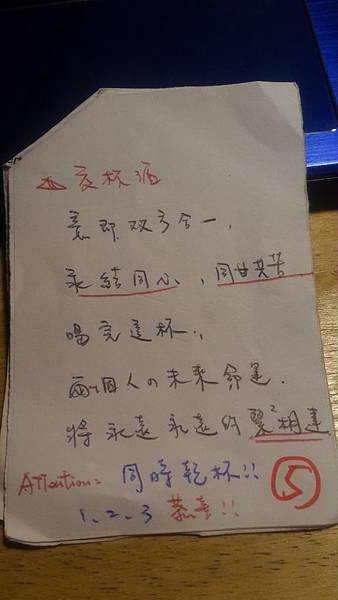 交杯酒
意即双方合一,
永結同心,同甘共苦
喝完這杯,
兩個人の未來命運.
將永遠永遠的緊²相連
Attention: 同時乾杯!!
1、2、3 恭喜!!
⑤